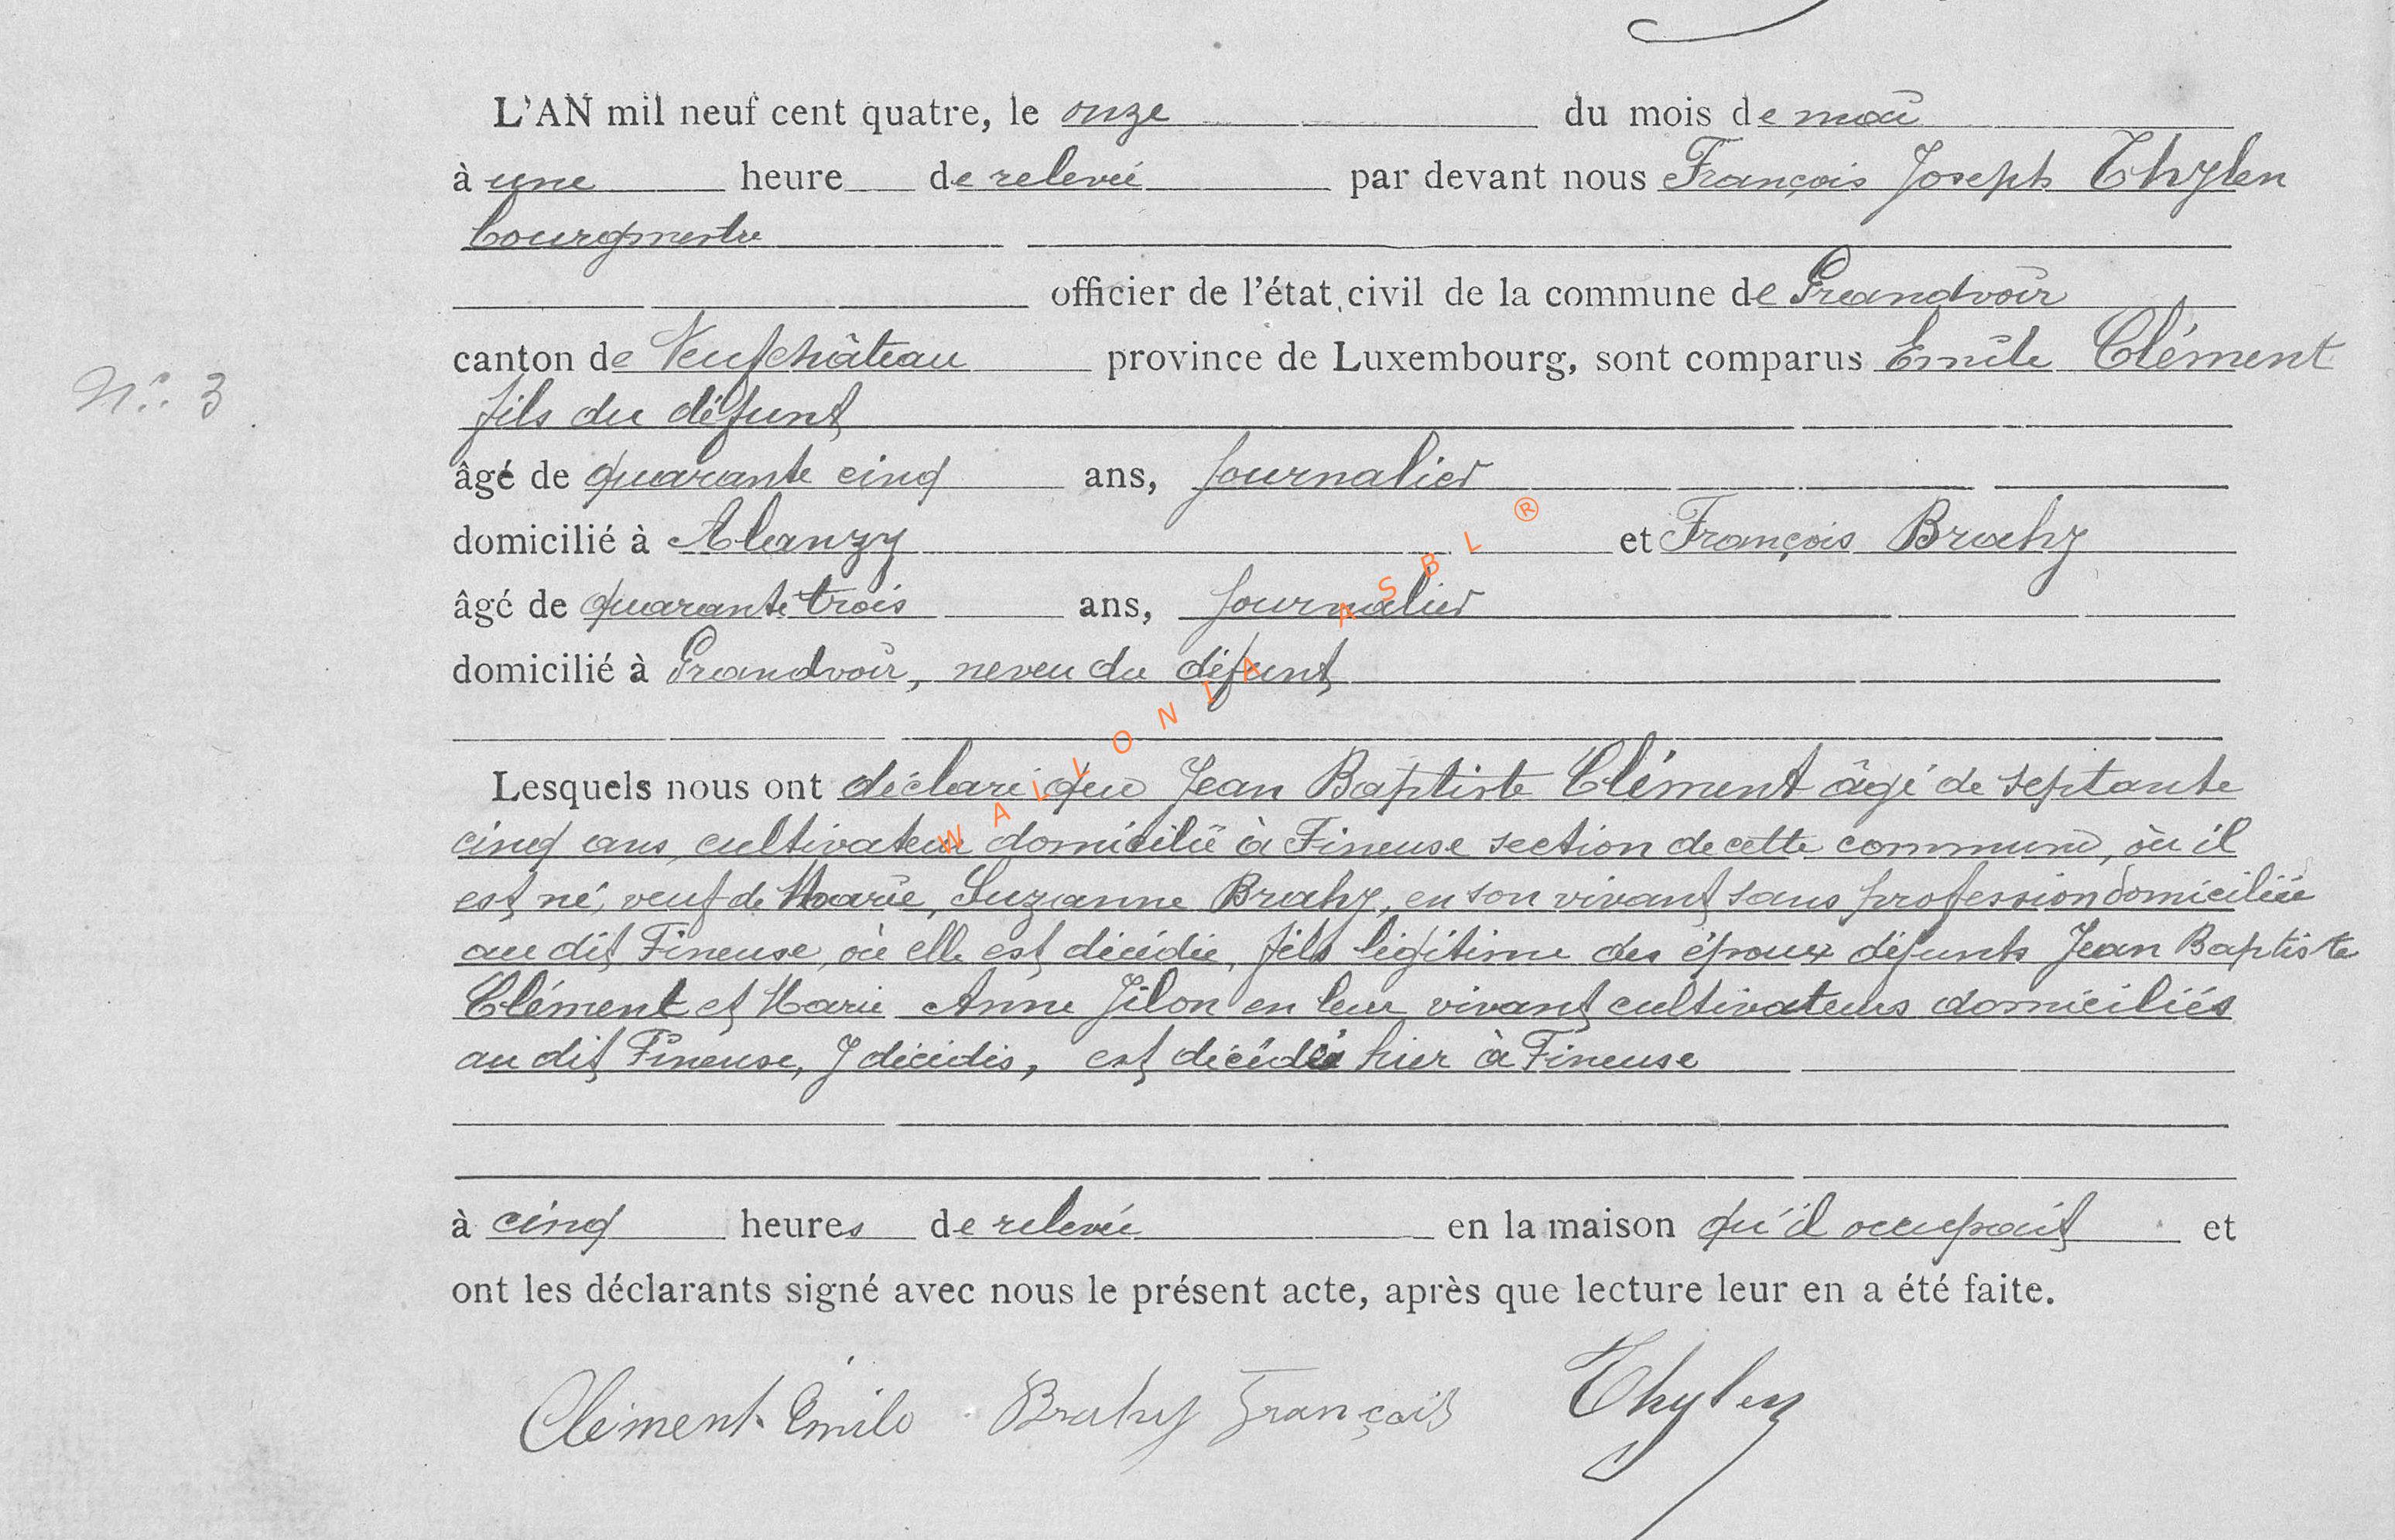 L'AN mil neuf cent quatre, le onze du mois de mai
à une heure de relevée par devant nous François Joseph Thylen
bourgmestre
officier de l'état civil de la commune de Grandvoir
canton de Neufchâteau province de Luxembourg, sont comparus Emile Clément
N°. 3
fils du défunt
âgé de quarante cinq ans, journalier
domicilié à Blanzy et François Brahy
âgé de quarante trois ans, journalier
domicilié à Grandvoir, neveu du défunt
Lesquels nous ont déclaré que Jean Baptiste Clément âgé de septante
cinq ans, cultivateur domicilié à Fineuse section de cette commune, où il
est né, veuf de Marie, Suzanne Brahy, en son vivant sans profession domiciliée
au dit Fineuse, où elle est décédée, fils légitime des époux défunts Jean Baptiste
Clément et Marie Anne Jilon en leur vivant cultivateurs domiciliés
au dit Fineuse, y décédés, est décédé hier à Fineuse
à cinq heures de relevée en la maison qu'il occupait et
ont les déclarants signé avec nous le présent acte, après que lecture leur en a été faite.
Clément Emile Brahy François Thylen
WALLONIA ASBL ®